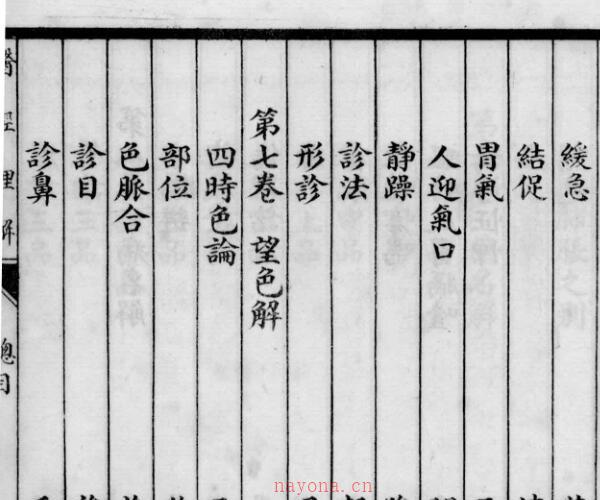 緩急
結促
胃氣
人迎氣口
靜躁
診法
形診
第七卷 望色解
四時色論
部位
色脈合
診目
診鼻
醫經理解 總目
nayona.cn